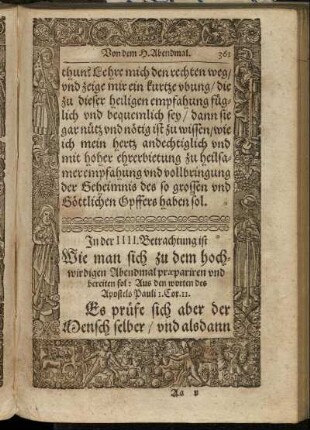 Von dem H. Abendmal. 361
thun? Lehre mich den rechten weg/
vnd zeige mir ein kurtze vbung/ die
zu dieser heiligen empfahung füg-
lich vnd bequemlich sey/ dann sie
gar nütz vnd nötig ist zu wissen/ wie
ich mein hertz andechtiglich vnd
mit hoher ehrerbietung zu heilsa-
mer empfahung vnd vollbringung
der Geheimnis des so grossen vnd
Göttlichen Opffers haben sol.
In der IIII. Betrachtung ist
Wie man sich zu dem hoch-
wirdigen Abendmal præpariren vnd
bereiten sol: Aus den worten des
Apostels Pauli 1. Cor. 11.
Es prüfe sich aber der
Mensch selber/ vnd alsdann
Aa v